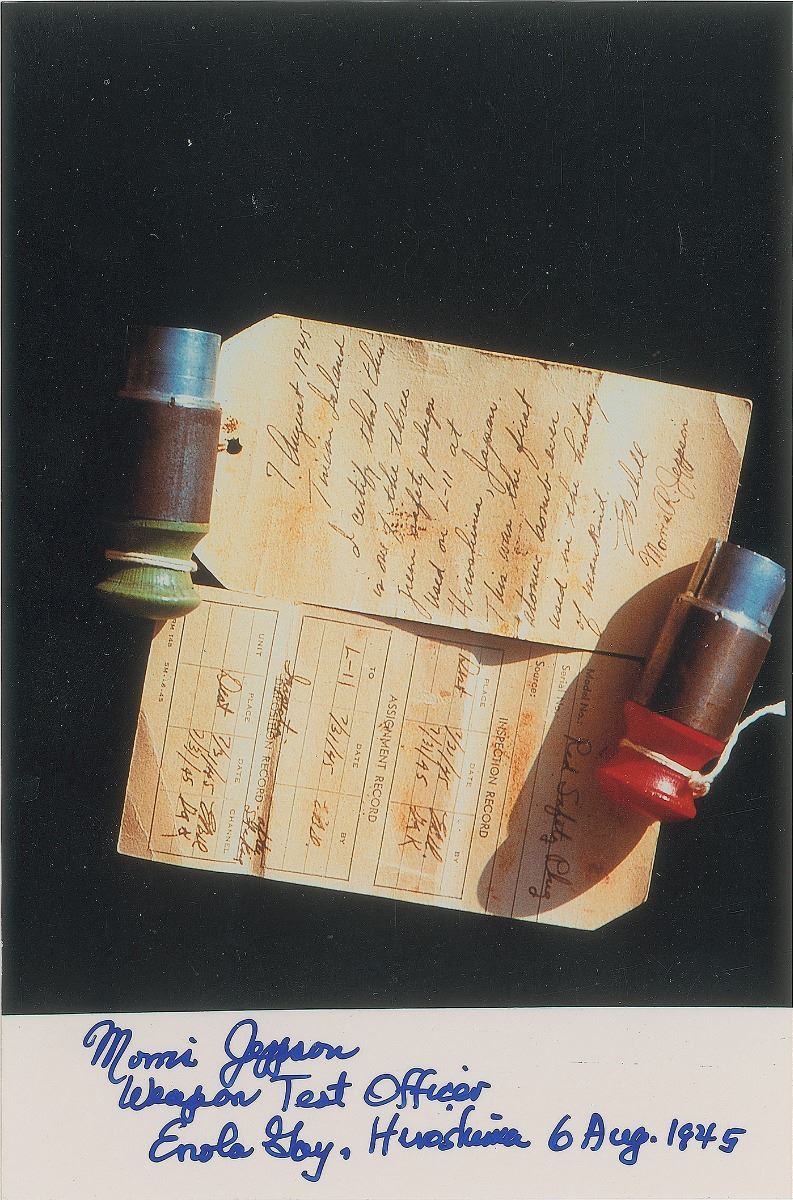 7 August 1945
Tinian Island
I certify that this
is one of the three
green safety plugs
used on L-11 at
Hiroshima Japan.
This was the first
atomic bomb ever
used in the history
of mankind.
Morris R. Jeppson
Model No.: Red Safety Plug
Serial
Source:
INSPECTION RECORD
PLACE DATE BY
7/3/45
7/3/45
ASSIGNMENT RECORD
TO DATE BY
L-11 7/31/45
DISPOSITION RECORD
UNIT PLACE DATE CHANNEL
7/3/45
7/3/45
RM 14B 5M-16-45
Morris Jeppson
Weapon Test Officer
Enola Gay, Hiroshima 6 Aug. 1945